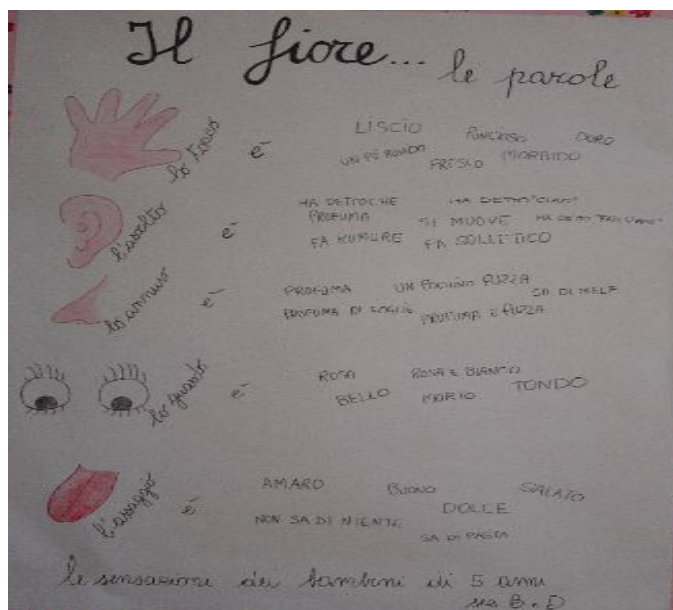 Il fiore... le parole
lo tocco è
LISCIO DURO
UN PÒ RUVIDO FRESCO MORBIDO
l'ascolto è
HA DETTO CHE HA DETTO "CIAO"
PROFUMA SI MUOVE HA DETTO
FA RUMORE FA SOLLETICO
lo annuso è
PROFUMA UN POCHINO PUZZA SA DI MELA
PROFUMA DI FOGLIE PROFUMA E PUZZA
lo guardo è
ROSA ROSA E BIANCO
BELLO MORTO TONDO
l'assaggio è
AMARO BUONO SALATO
NON SA DI NIENTE DOLCE
SA DI PASTA
le sensazioni dei bambini di 5 anni
sez B. D